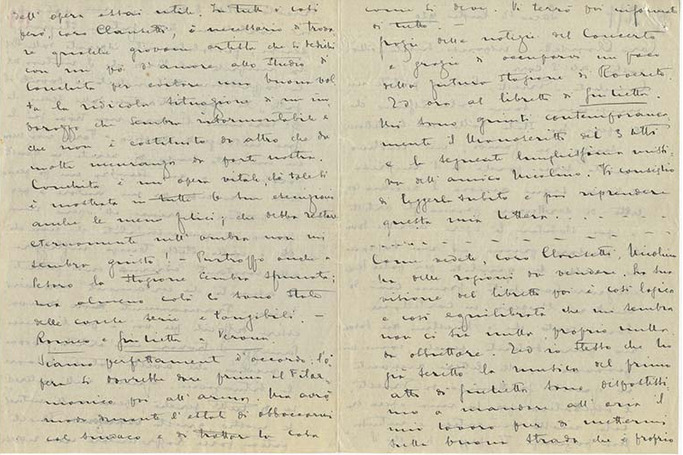 dell'opera assai utile. In tutti i casi
però, caro Clausetti, è necessario di trova-
re qualche giovane artista che si dedichi
con un pò di amore allo studio di
Conchita per evitare una buona vol-
ta la ridicola situazione di un in-
che sembra insormontabile e
che non è costituito da altro che da
da parte nostra.
Conchita è un'opera vitale, da tale si
è mostrata in tutte le sue esecuzioni
anche le meno felici; che debba restare
eternamente nell'ombra non mi
sembra giusto! - Purtroppo anche a
Pesaro la stagione sembra sfumata;
ma almeno colà ci sono state
delle corse serie e tangibili -
Romeo e Giulietta a Verona
Siamo perfettamente d'accordo. L'o-
pera si dovrebbe dare prima al Filar-
monico poi all'arena. Ma avrò
modo durante l'estate di abboccarmi
col sindaco e di trattar la cosa
come si deve. Vi terrò poi informato
di tutto.
Grazie delle notizie del Concerto
e grazie di occuparvi un poco
della futura stagione di Rovereto.
Ed ora al libretto di Giulietta.
Mi sono giunti contemporanea-
mente i manoscritti dei 3 atti
e la seguente lunghissima missi-
va dell'amico Nicolino. Vi consiglio
di leggerla subito e poi riprendere
questa mia lettera...
Come vedete, caro Clausetti, Nicolino
ha delle ragioni da vendere. La sua
visione del libretto poi è così logica
e così equilibrata che mi sembra
non ci sia nulla proprio nulla
da obbiettare. Ed io stesso che ho
già scritto la musica del primo
atto di Giulietta sono dispostissi-
mo a mandare all'aria il
mio lavoro pur di mettermi
sulla buona strada che è proprio